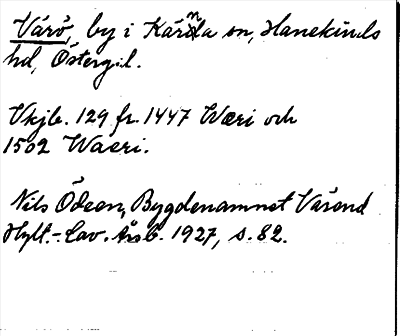 Värö, by i Kärna sn, Hanekinds
hd, Östergtl.
Vkjb. 129 fr. 1447 Wæri och
1502 Waeri.
Nils Ödeen, Bygdenamnet Värend
Hylt.-Cav. Årsb. 1927, s. 82.